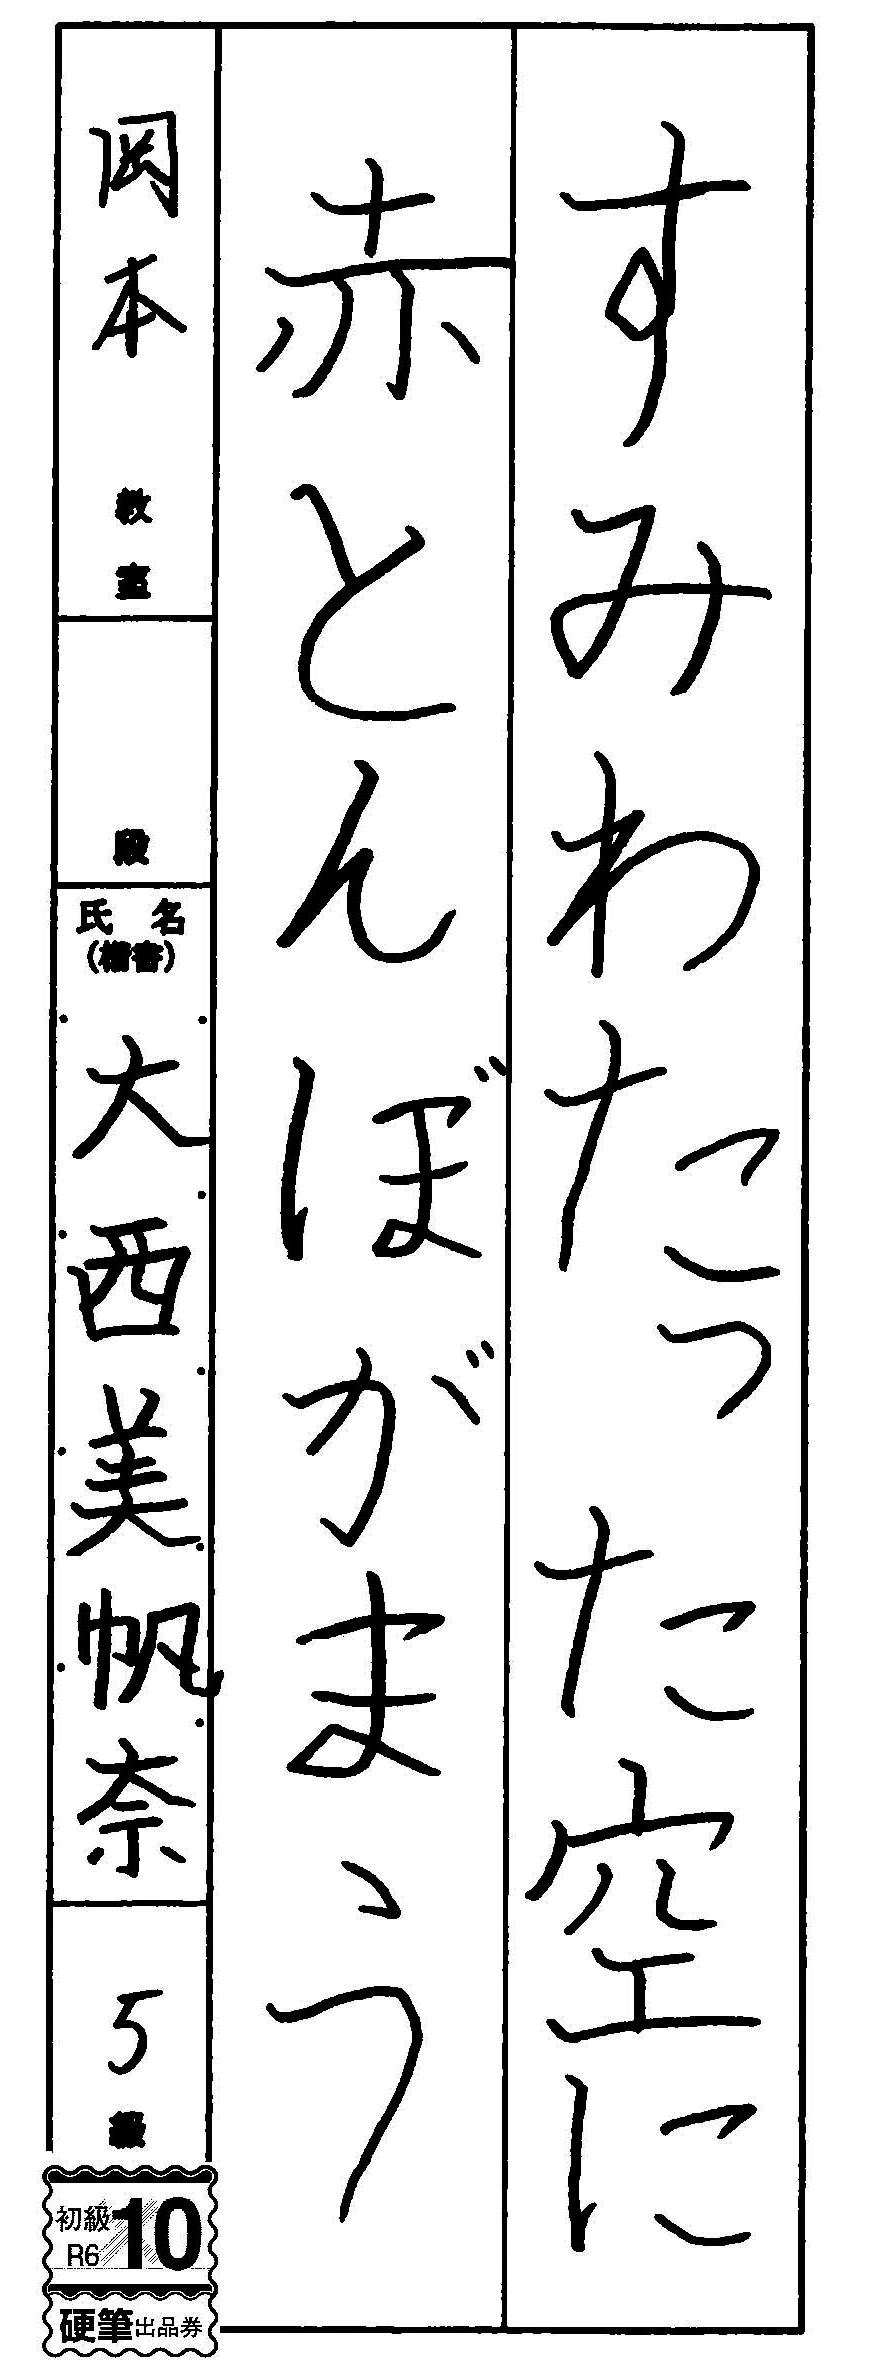 すみわたった空に
赤とんぼがまう
岡本教室
段
氏名
(楷書)
大西美帆奈
5級
初級
R6
10
硬筆出品券